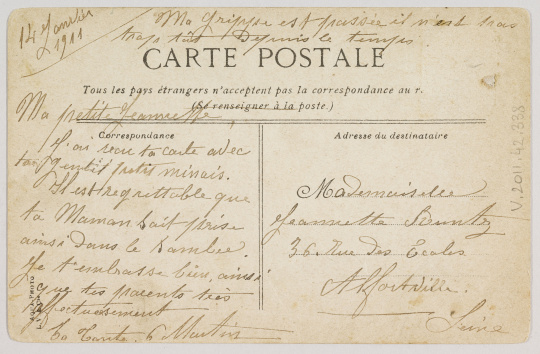 14 Janvier
1911
Ma grippe est passée il n'est pas
trop tôt Depuis le temps
CARTE POSTALE
Tous les pays étrangers n'acceptent pas la correspondance au r.
(Se renseigner à la poste.)
Ma petite Jeannette,
Correspondance
J'ai reçu ta carte avec
ta gentil petits minais.
Il est regrettable que
ta Maman soit prise
ainsi dans le
Je t'embrasse bien, ainsi
que tes parents très
affectueusement
Ta Tante. G Martin
Adresse du destinataire
Mademoiselle
Jeannette
36. Rue des Ecoles
Alfortville.
Seine
V.2011.42.333